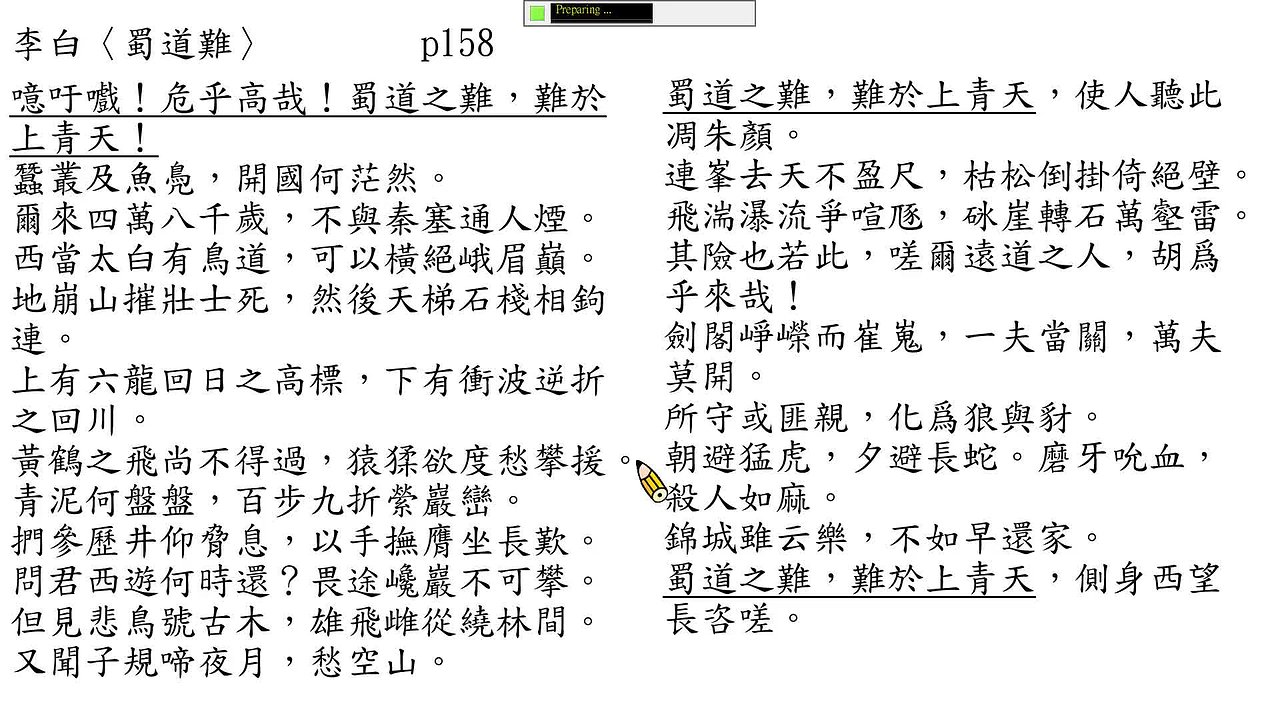 Preparing ...
李白〈蜀道難〉 p158
噫吁嚱！危乎高哉！蜀道之難，難於
上青天！
蠶叢及魚鳧，開國何茫然。
爾來四萬八千歲，不與秦塞通人煙。
西當太白有鳥道，可以橫絕峨眉巔。
地崩山摧壯士死，然後天梯石棧相鉤
連。
上有六龍回日之高標，下有衝波逆折
之回川。
黃鶴之飛尚不得過，猿猱欲度愁攀援。
青泥何盤盤，百步九折縈巖巒。
捫參歷井仰脅息，以手撫膺坐長歎。
問君西遊何時還？畏途巉巖不可攀。
但見悲鳥號古木，雄飛雌從繞林間。
又聞子規啼夜月，愁空山。
蜀道之難，難於上青天，使人聽此
凋朱顏。
連峯去天不盈尺，枯松倒掛倚絕壁。
飛湍瀑流爭喧豗，砯崖轉石萬壑雷。
其險也若此，嗟爾遠道之人，胡爲
乎來哉！
劍閣崢嶸而崔嵬，一夫當關，萬夫
莫開。
所守或匪親，化爲狼與豺。
朝避猛虎，夕避長蛇。磨牙吮血，
殺人如麻。
錦城雖云樂，不如早還家。
蜀道之難，難於上青天，側身西望
長咨嗟。